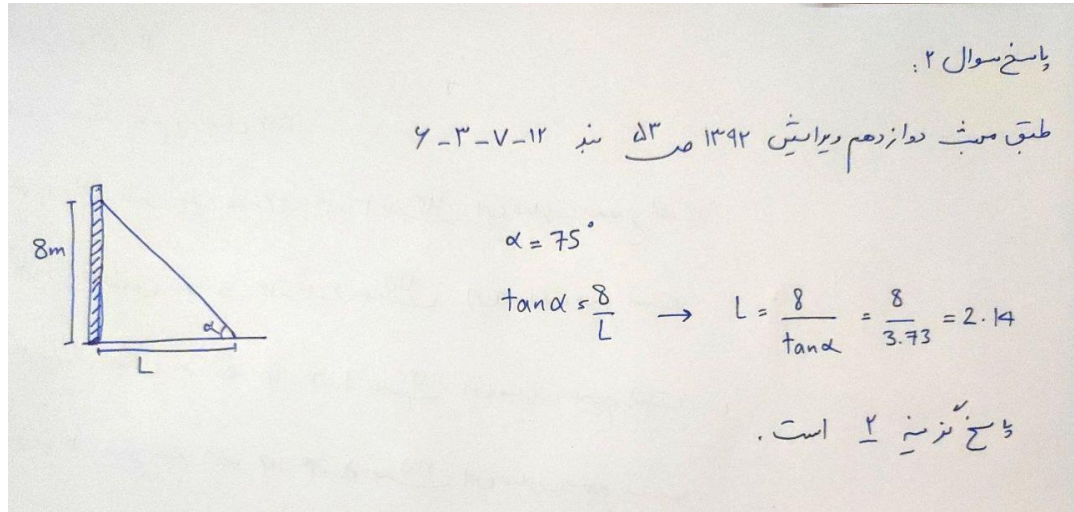 پاسخ سوال ۲:
طبق مبحث دوازدهم ویرایش ۱۳۹۲ ص ۵۳ بند ۱۲-۷-۳-۶
8m
α
L
α = 75°
tanα = 8/L → L = 8/tanα = 8/3.73 = 2.14
پاسخ گزینه ۲ است.